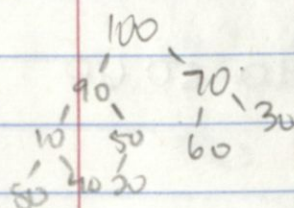 100
90 70
10 50 60 30
80 40 20